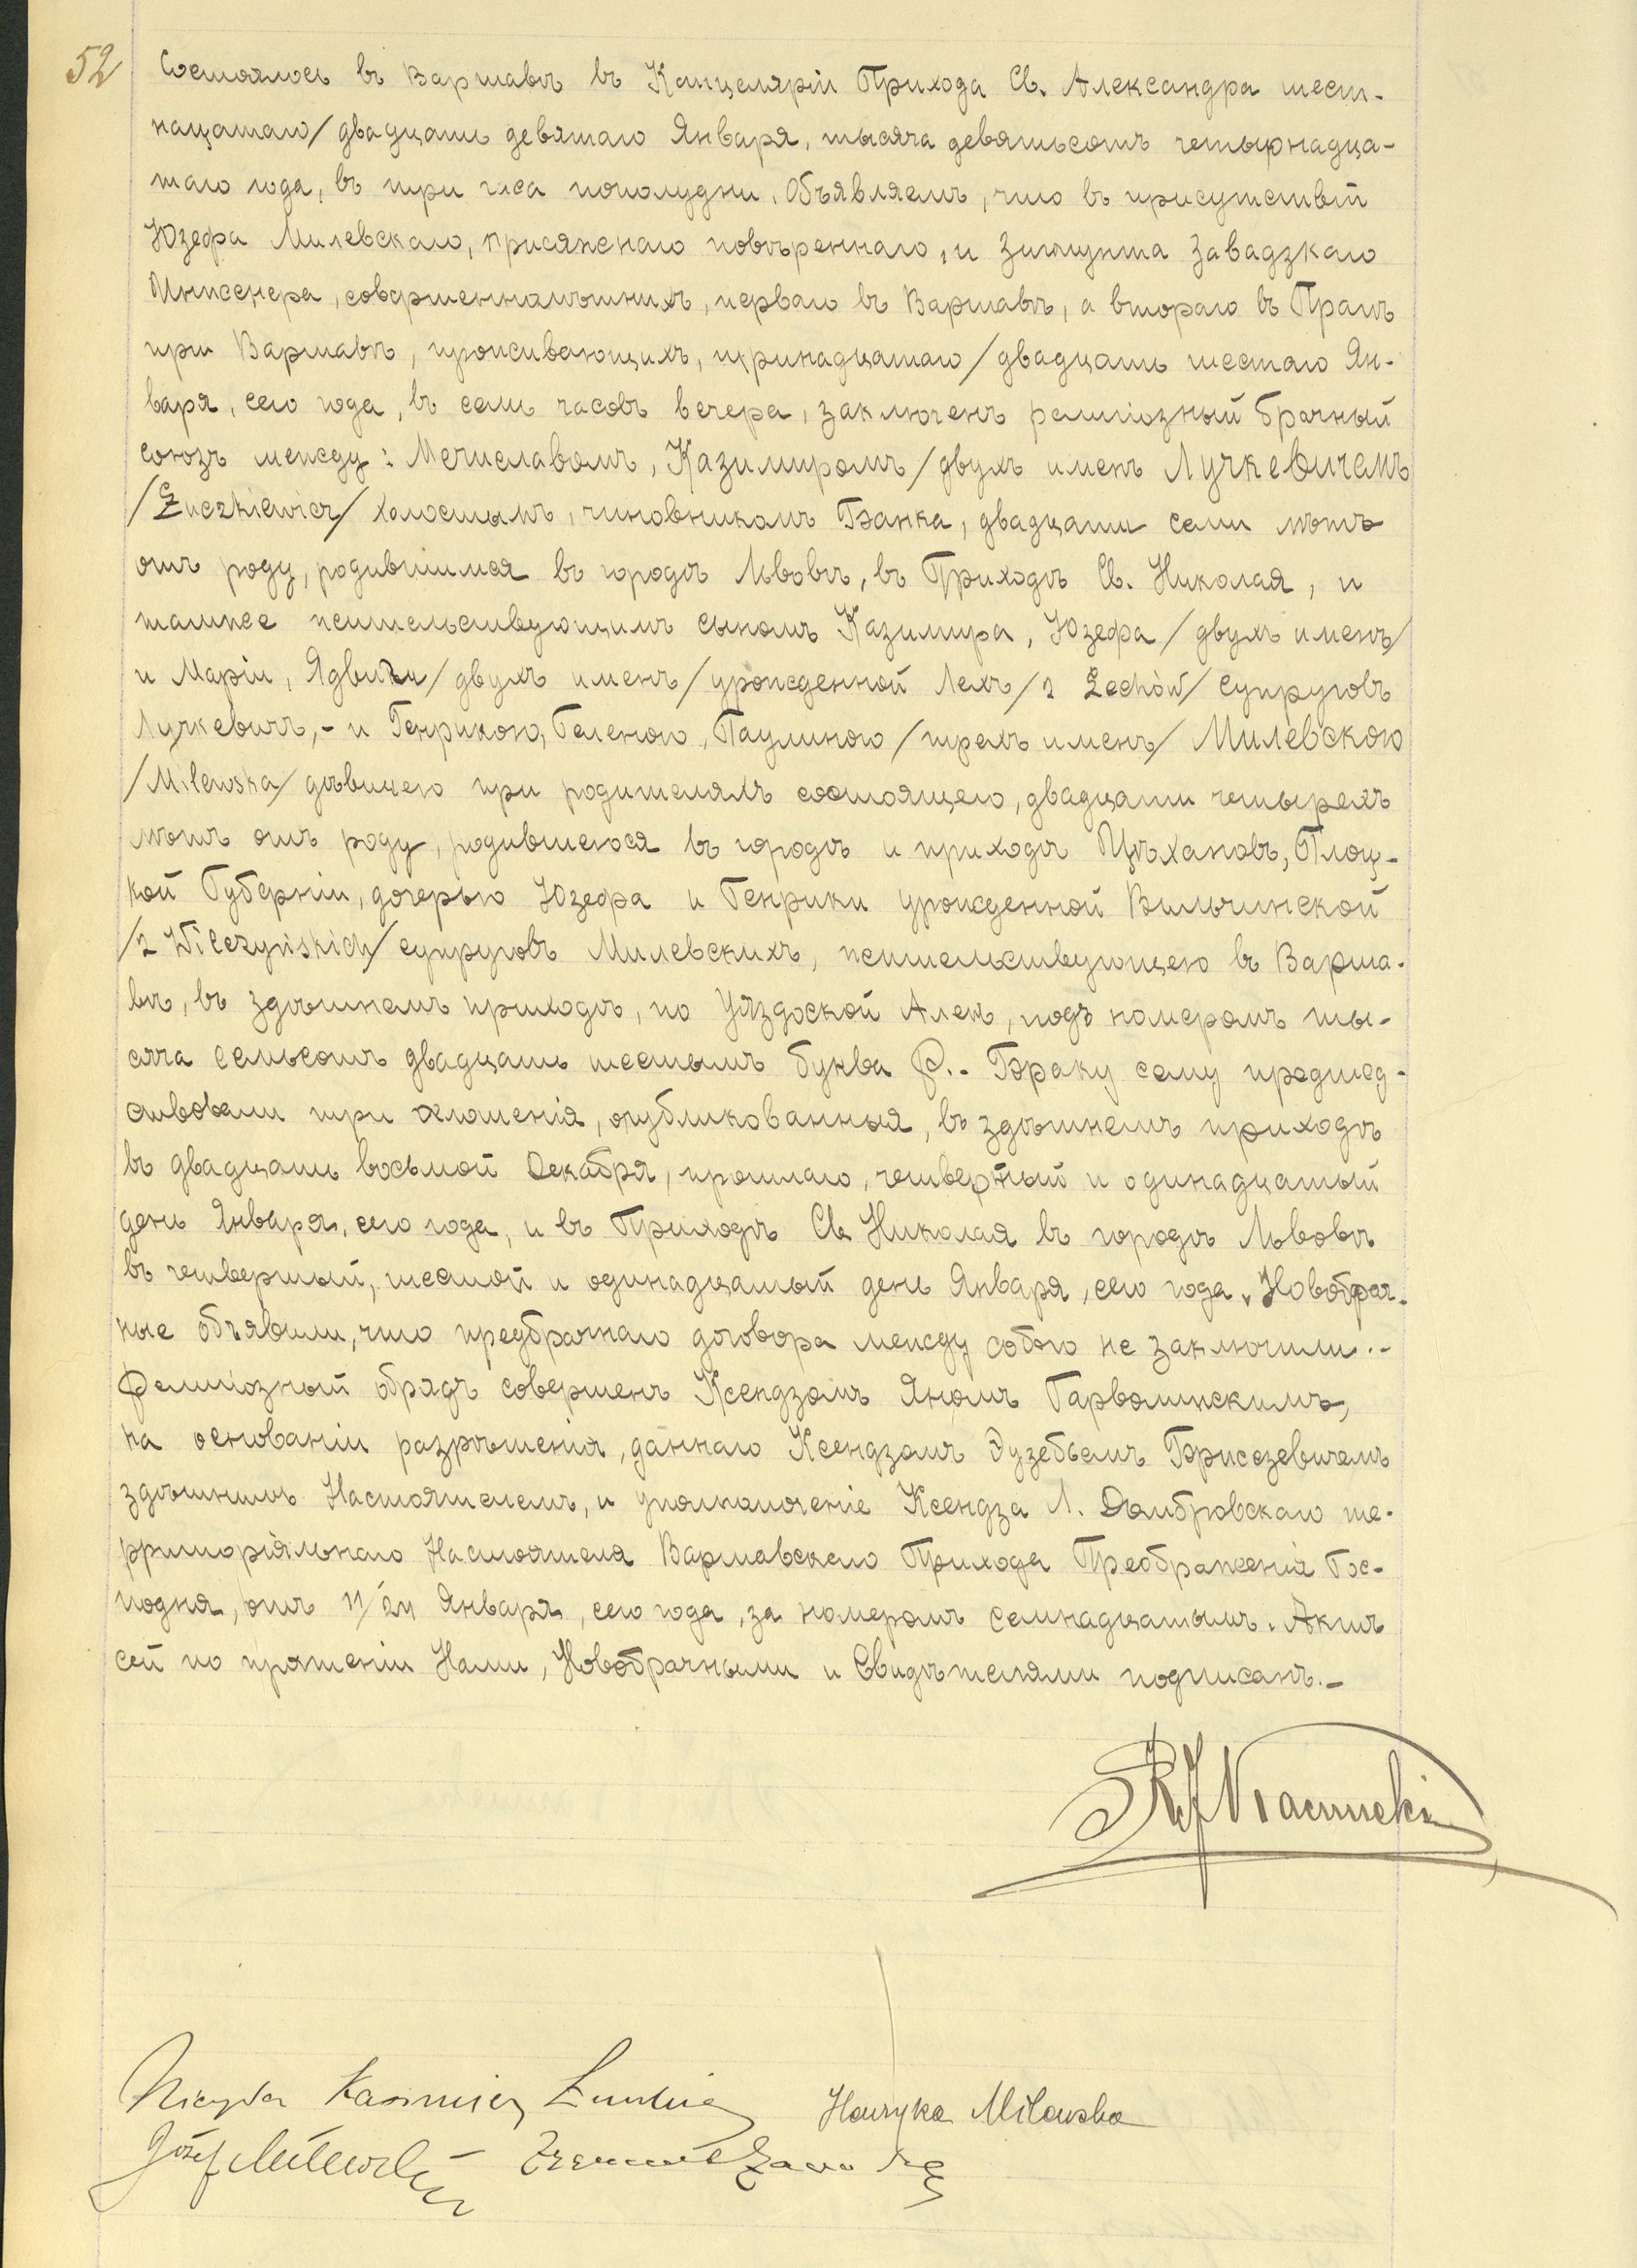 52
Состоялось въ Варшавѣ въ Канцеляріи Прихода Св. Александра шест-
нацатаго/двадцать девятаго Января, тысяча девятьсотъ четырнадца-
таго года, въ три часа пополудни. Объявляемъ, что въ присутствіи
Юзефа Милевскаго, присяжнаго повѣреннаго, и Зигмунта Завадзкаго
Инженера, совершеннолѣтнихъ, перваго въ Варшавѣ, а втораго въ Прагѣ
при Варшавѣ, проживающихъ, тринадцатаго/двадцать шестаго Ян-
варя, сего года, въ семь часовъ вечера, заключенъ религіозный брачный
союзъ между: Мечиславомъ, Казимиромъ/двухъ именъ Лучкевичемъ
/Łuczkiewicz/ холостымъ, чиновникомъ Банка, двадцати семи лѣтъ
отъ роду, родившимся въ городѣ Львовѣ, въ Приходѣ Св. Николая, и
тамже жительствующимъ сыномъ Казимира, Юзефа/двухъ именъ/
и Маріи, Ядвиги/двухъ именъ/урожденной Лехъ/z Lechów/супруговъ
Лучкевичъ,- и Генрикою, Геленою, Паулиною/трехъ именъ/ Милевскою
/Milewska/ дѣвицею при родителяхъ состоящею, двадцати четырехъ
лѣтъ отъ роду, родившеюся въ городѣ и приходѣ Цѣхановъ, Плоц-
кой Губерніи, дочерью Юзефа и Генрики урожденной Вильчинской
/z Wilczyńskich/супруговъ Милевскихъ, жительствующею въ Варша-
вѣ, въ здѣшнемъ приходѣ, по Уяздоской Алеѣ, подъ номеромъ ты-
сяча семьсотъ двадцать шестымъ буква Ф.- Браку сему предшед-
ствовали три оглошенія, опубликованныя, въ здѣшнемъ приходѣ
въ двадцать восьмой Декабря, прошлаго, четвертый и одинадцатый
день Января, сего года, и въ Приходѣ Св. Николая въ городѣ Львовѣ
въ четвертый, шестой и одинадцатый день Января, сего года. Новобрач-
ные объявили, что предбрачнаго договора между собою не заключили.-
Религіозный обрядъ совершенъ Ксендзомъ Яномъ Гарволинскимъ,
на основаніи разрѣшенія, даннаго Ксендзомъ Эузебьемъ Брисезевичемъ
здѣшнимъ Настоятелемъ, и уполномоченіе Ксендза Л. Домбровскаго те-
рриторіяльнаго Настоятеля Варшавскаго Прихода Преображенія Гос-
подня, отъ 11/24 Января, сего года, за номеромъ семнадцатымъ. Актъ
сей по прятеніи Нами, Новобрачными и Свидѣтелями подписанъ.-
Kazimierz Henryka Milewska
Józef Milewski